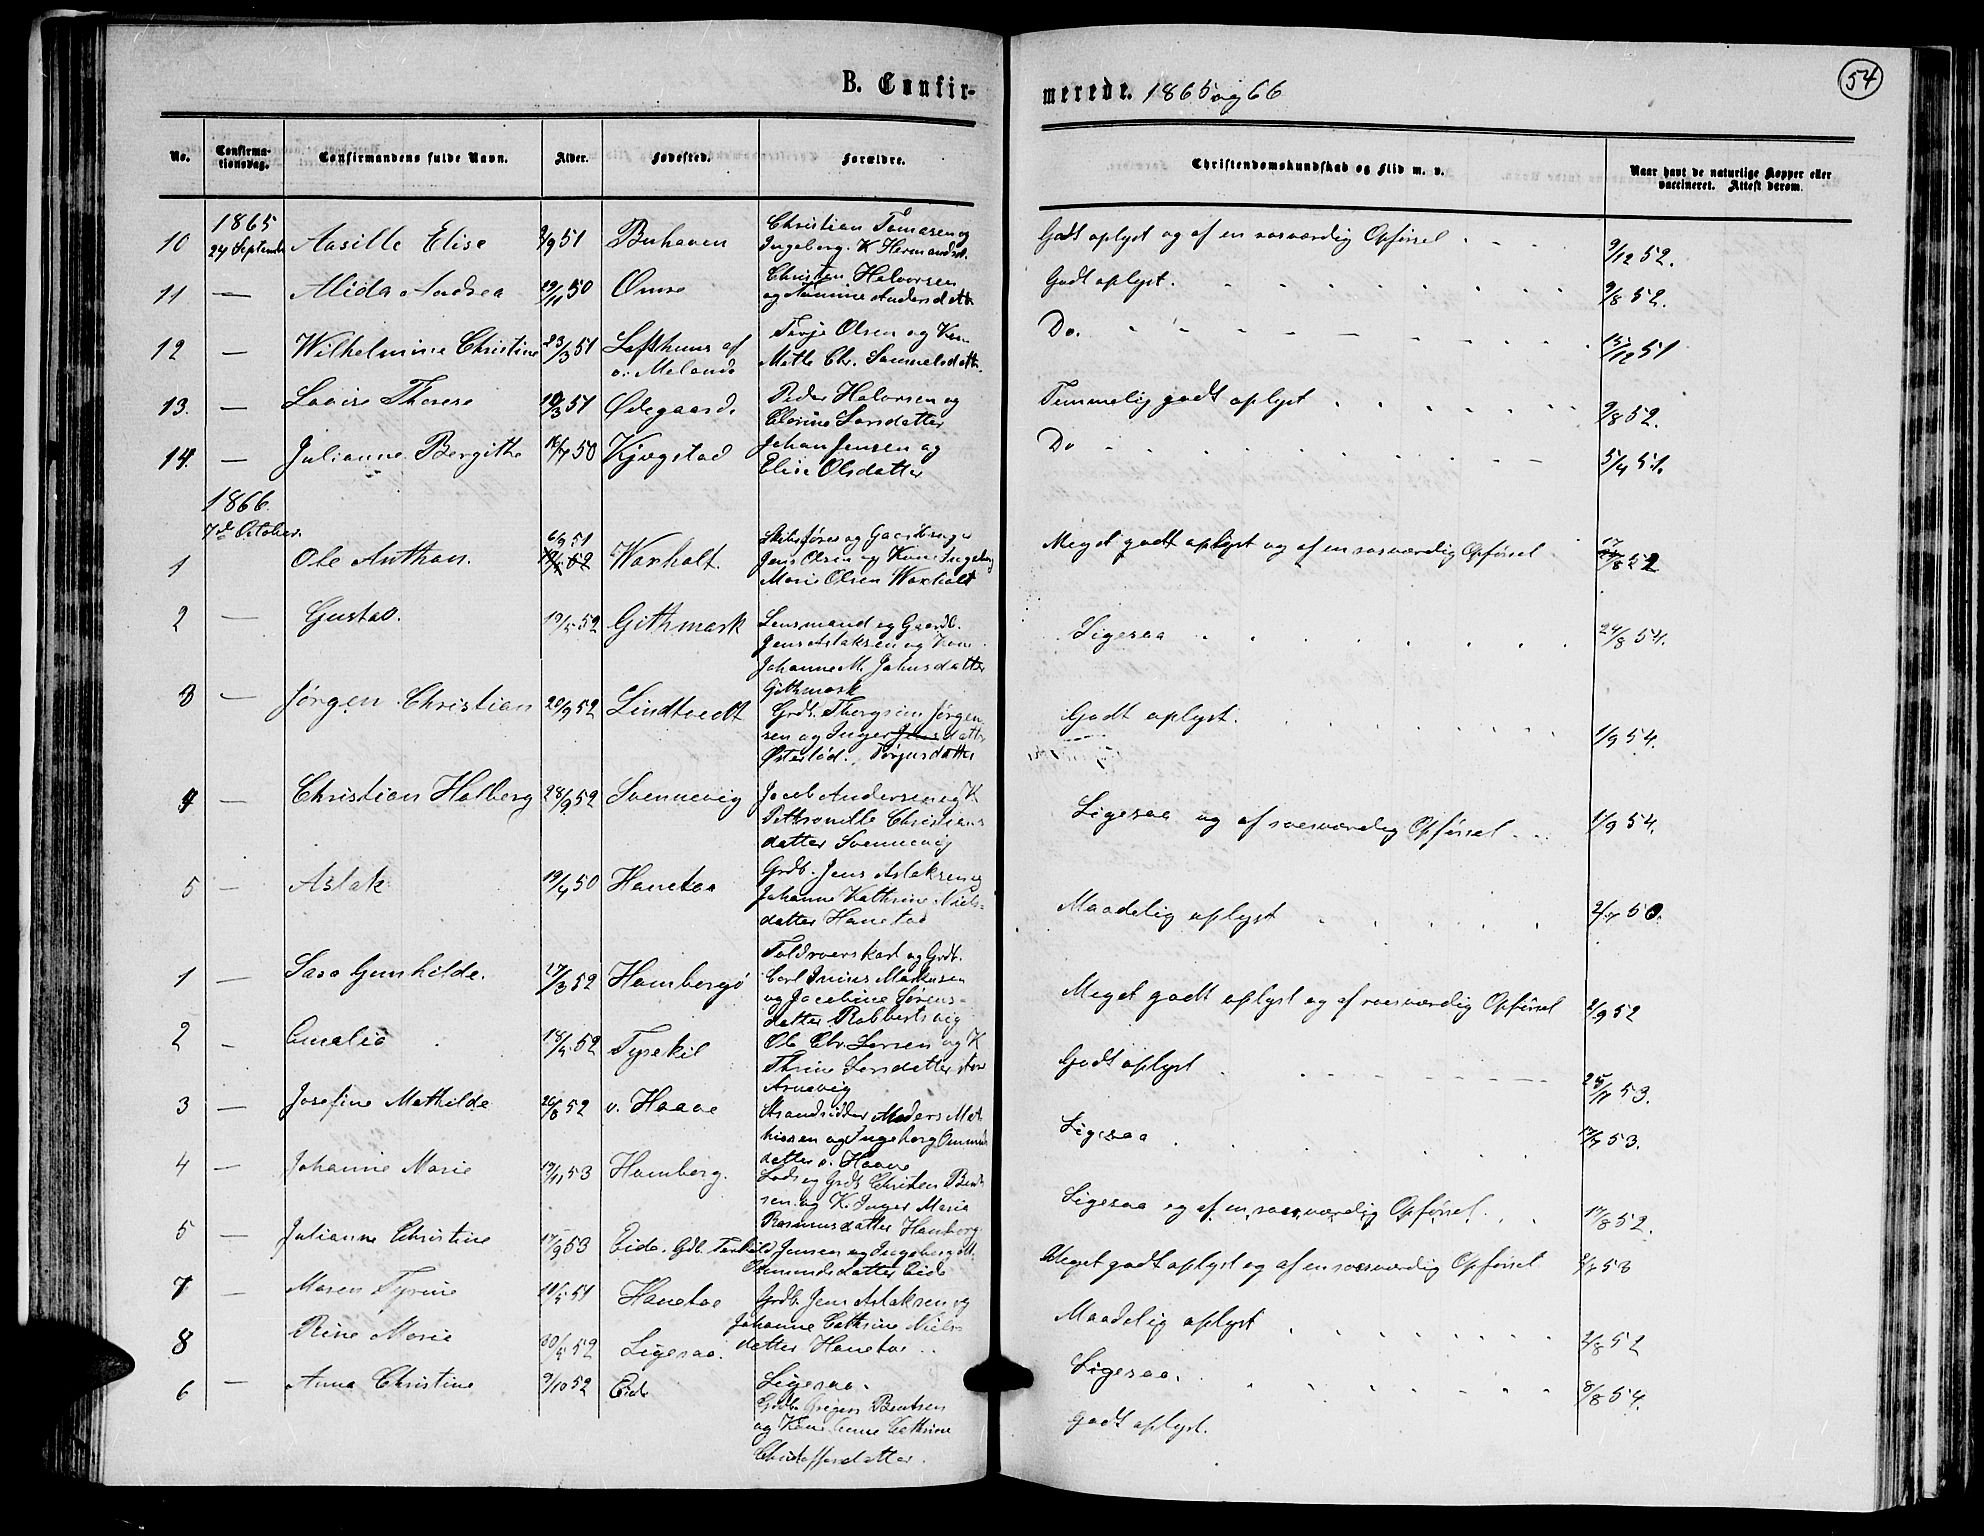 B. Confir-
merede. 1865 og 66
54
No.
Confirma-
tionsdag.
Confirmandens fulde Navn.
Alder.
Fødested.
Forældre.
Christendomskundskab og Flid m. v.
Naar havt de naturlige Kopper eller
vaccineret. Attest derom.
1865
10 24 September Aasille Elise 2/9 51 Buhaven
Christian Tomasen og
Ingeborg K. Hermandsd.
Godt oplyst og af en rosværdig Opførsel 9/12 52.
11 — Alida Andrea 29/11 50 Omre
Christen Halvorsen
og Andersdatt.
Godt oplyst. 9/8 52.
12 — Wilhelmine Christine 23/3 51 Lofthuus af
v. Meland
Terje Olsen og Kone
Mette Chr. Samuelsdatt.
Do. 15/12 51
13. — Lovise Therese 10/3 51 Ødegaard.
Peder Halvorsen og
Larsdatter
Temmelig godt oplyst 9/8 52.
14. — Julianne Bergithe 16/7 50 Kjøgstad
Johan Jensen og
Elise Olsdatter
Do 5/4 51.
1866.
7de October.
1 Ole Anthon. 6/9 51 Waxholt.
Skibsfører og Gaardbruger
Jens Olsen og Kone Ingeborg
Marie Olsen Waxholt
Meget godt oplyst og af en rosværdig Opførsel 17/8 52
2 — Gustav. 19/5 52 Githmark
Lensmand og Gaardb.
Jens Aslaksen og Kone
Johanne M. Johnsdatter
Githmark
Ligesaa 24/8 54.
3 — Jørgen Christian 20/9 52 Lindtvedt
Grdb. Thorgrim Jørgen
sen og Inger Jensdatter
Østeslød. Torjusdatter
Godt oplyst. 1/9 54.
4 — Christian Holberg 28/9 52 Svennevig
Jacob Andersen og K
Pethronille Christians
datter Svennevig
Ligesaa og af rosværdig Opførsel 1/9 54.
5 — Aslak 19/4 50 Hanetoe
Grdb. Jens Aslaksen og
Johanne Kathrine Niels-
datter Hanetoe
Maadelig oplyst 2/7 50.
1 — Sara Gunhilde. 27/3 52 Hombergø
Toldroerskarl og Grdb.
Carl Junius Markusen
og Jacobine Sørens-
datter Robbertsvig
Meget godt oplyst og af rosværdig Opførsel 2/9 52
2 — Amalia 18/4 52 Tyrekil
Ole Chr. Larsen og K
Thrine Larsdatter store
Arnevig
Godt oplyst 25/11 53.
3 — Josefine Mathilde 26/8 52 v. Haave
Strandsidder Mat
hissen og Ingeborg
datter v. Haave
Ligesaa 17/7 53.
4 — Johanne Marie 19/11 53 Homborg.
Lods og Grdb Christen Bent
sen og K. Inger Maria
Rasmusdatter Homborg
Ligesaa og af en rosværdig Opførsel. 17/8 52.
5 — Julianne Christine 17/9 53 Eide.
Gdb. Terkild Jensen og Ingeborg M.
datter Eide
Meget godt oplyst og af en rosværdig Opførsel 2/7 53
7 — Maren Tyrine 10/5 51 Hanetoe
Grdb. Jens Aslaksen og
Johanne Cathrine Niels-
datter Hanetoe
Maadelig oplyst 2/8 52
8 — Rine Marie 30/5 52 Ligesaa.
Ligesaa.
Ligesaa. 8/8 54.
6 — Anna Christine 9/10 52 Eide
Grdb. Bentsen
og Kone Anne Cathrine
Christoffersdatter.
Godt oplyst.